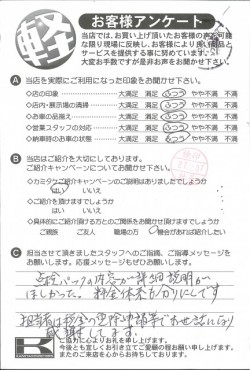 軽
お客様アンケート
当店では、お買い上げ頂いたお客様の声を可能
な限り現場に反映し、お客様により良い商品と
サービスを提供する事に努めています。
大変お手数ですが是非お声をお聞かせ下さい。
A 当店を実際にご利用になった印象をお聞かせ下さい。
◇店の印象 大満足 満足 ふつう やや不満 不満
◇店内・展示場の清掃 大満足 満足 ふつう やや不満 不満
◇お車の品揃え 大満足 満足 ふつう やや不満 不満
◇営業スタッフの対応 大満足 満足 ふつう やや不満 不満
◇納車時のお車の状態 大満足 満足 ふつう やや不満 不満
B 当店はご紹介を大切にしております。
ご紹介キャンペーンについてお聞かせ下さい。
◇カミタケご紹介キャンペーンのご説明はありましたでしょうか
はい いいえ
◇ご紹介を頂けますでしょうか
はい いいえ
◇具体的にご紹介頂ける方とのご関係をお聞かせ頂けますでしょうか
ご親族 ご友人 職場の方 機会があれば紹介したい
C 担当させて頂きましたスタッフへのご指摘、ご指導メッセージを
お願いします。応援メッセージもぜひお願いします。
点検パックの内容が詳細説明が
ほしかった。料金体系も分かりにくいです
担当者は 申請等でお世話になり
感謝してます。
ご協力に心よりお礼を申し上げます。
今後とも宜しくお引き立てご愛顧の程お願い申し上げます。
またのご来店を心からお待ちしております。